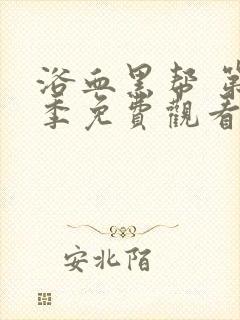 浴血黑帮 第
季免費觀看
安北陌